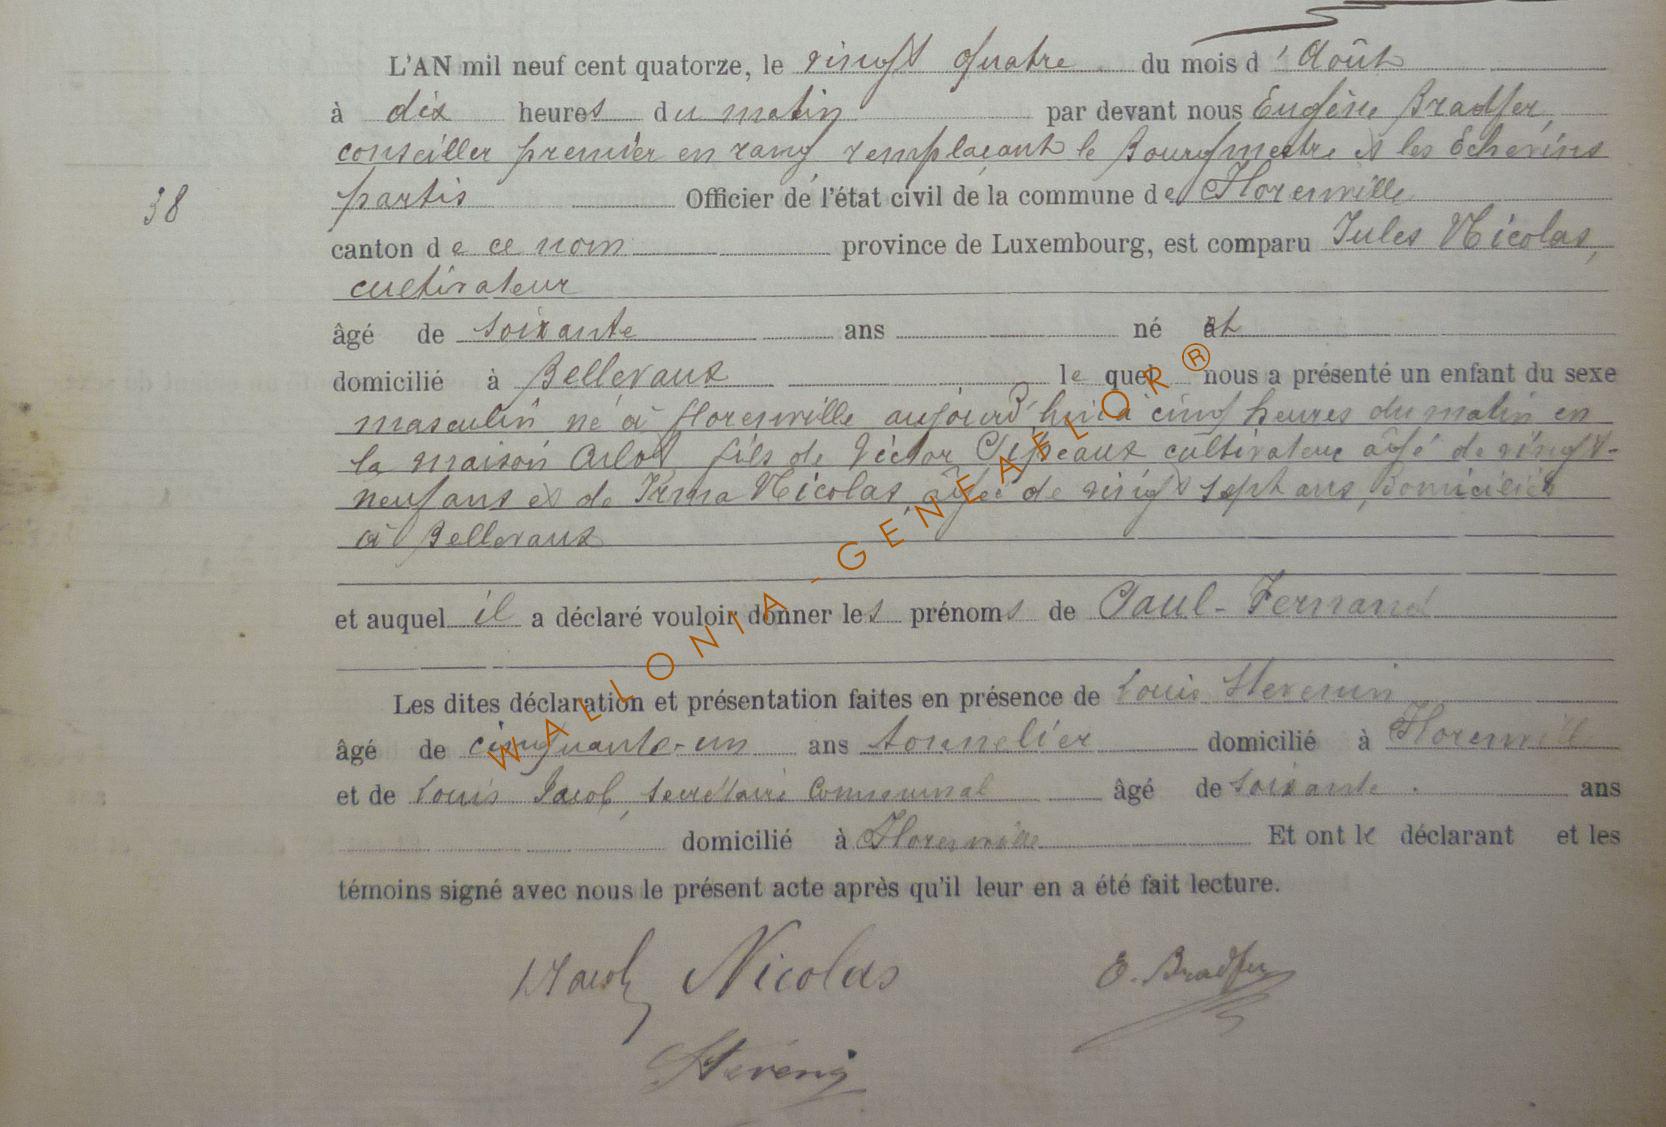 L'AN mil neuf cent quatorze, le vingt quatre du mois d'Août
à dix heures du matin par devant nous Eugène Bradfer,
conseiller premier en rang remplaçant le Bourgmestre et les Echevins
38
partis Officier de l'état civil de la commune de Florenville
canton de ce nom province de Luxembourg, est comparu Jules Nicolas,
cultivateur
âgé de soixante ans né et
domicilié à Bellevaux le quel nous a présenté un enfant du sexe
masculin né à Florenville aujourd'hui à cinq heures du matin en
la maison Arlot, fils de Victor cultivateur âgé de vingt-
neuf ans et de Irma Nicolas, âgée de vingt sept ans, domiciliés
à Bellevaux
et auquel il a déclaré vouloir donner les prénoms de Paul-Fernand
Les dites déclaration et présentation faites en présence de Louis Stevenin
âgé de cinquante-un ans tonnelier domicilié à Florenville
et de Louis Jacob, secrétaire communal âgé de soixante ans
domicilié à Florenville Et ont le déclarant et les
témoins signé avec nous le présent acte après qu'il leur en a été fait lecture.
Jacob Nicolas E. Bradfer
Stévenin
WALLONIA-GENEAFLOR ®